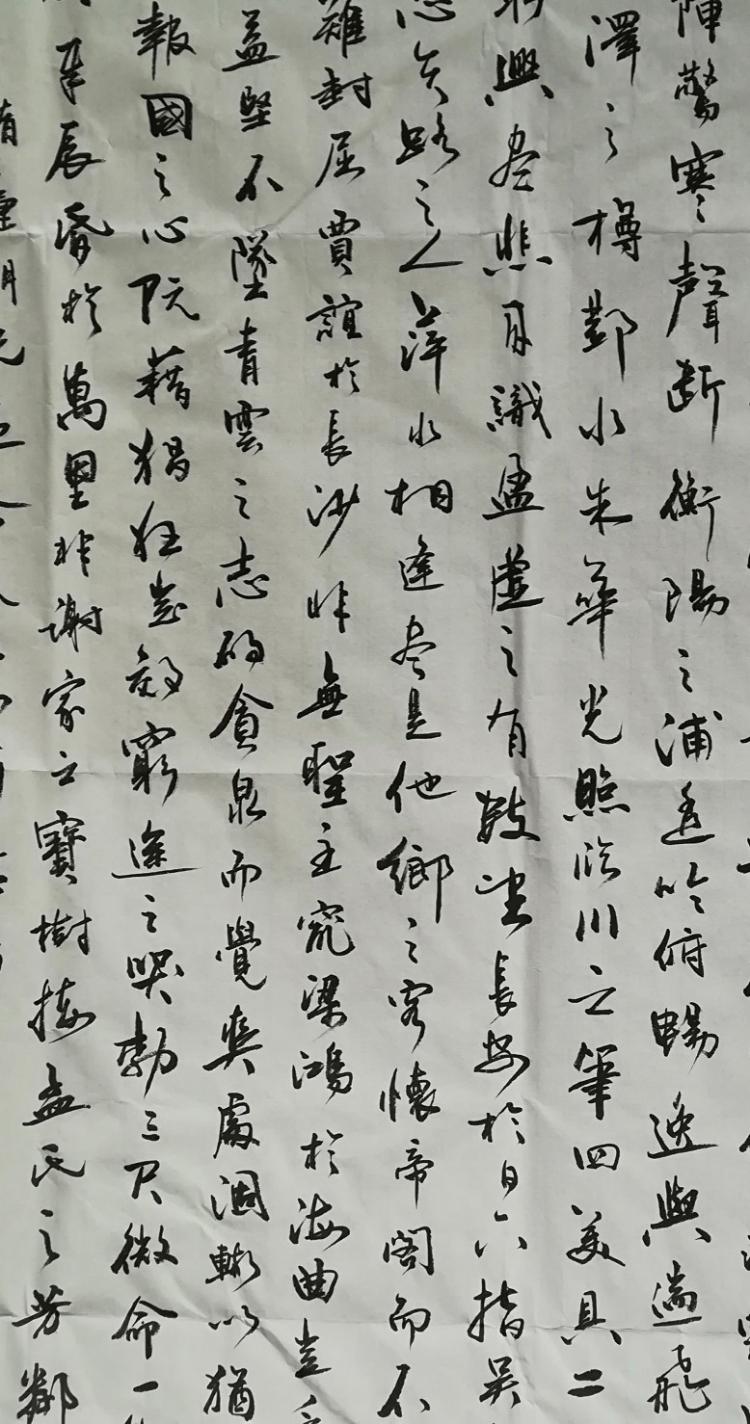 陣驚寒聲斷衡陽之浦遥吟俯暢逸興遄飛
澤之樽鄴水朱華光照臨川之筆四美具二
興盡悲月識盈虚之有數望長安於日下指吳
悲失路之人萍水相逢盡是他鄉之客懷帝閽而不
難封屈賈誼於長沙非無聖主竄梁鴻於海曲豈
益堅不墜青雲之志酌貪泉而覺爽處涸轍以猶
報國之心阮藉猖狂豈效窮途之哭勃三尺微命一
奉晨昏於萬里非謝家之寶樹接孟氏之芳鄰